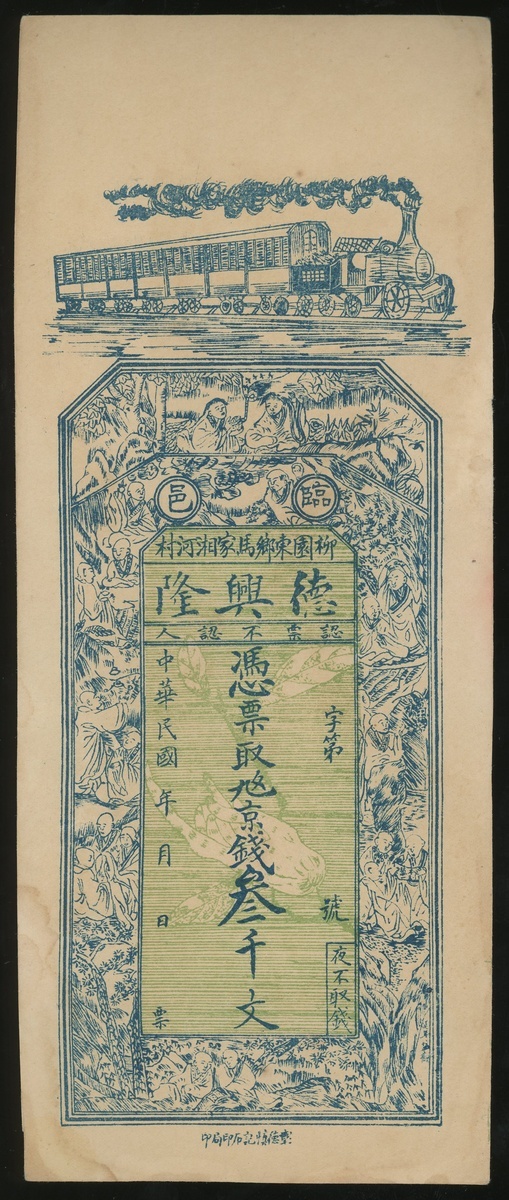 臨邑
柳園東鄉馬家湘河村
德興隆
認票不認人
字第 號
夜不取錢
憑票取九京錢叁千文
中華民國 年 月 日 票